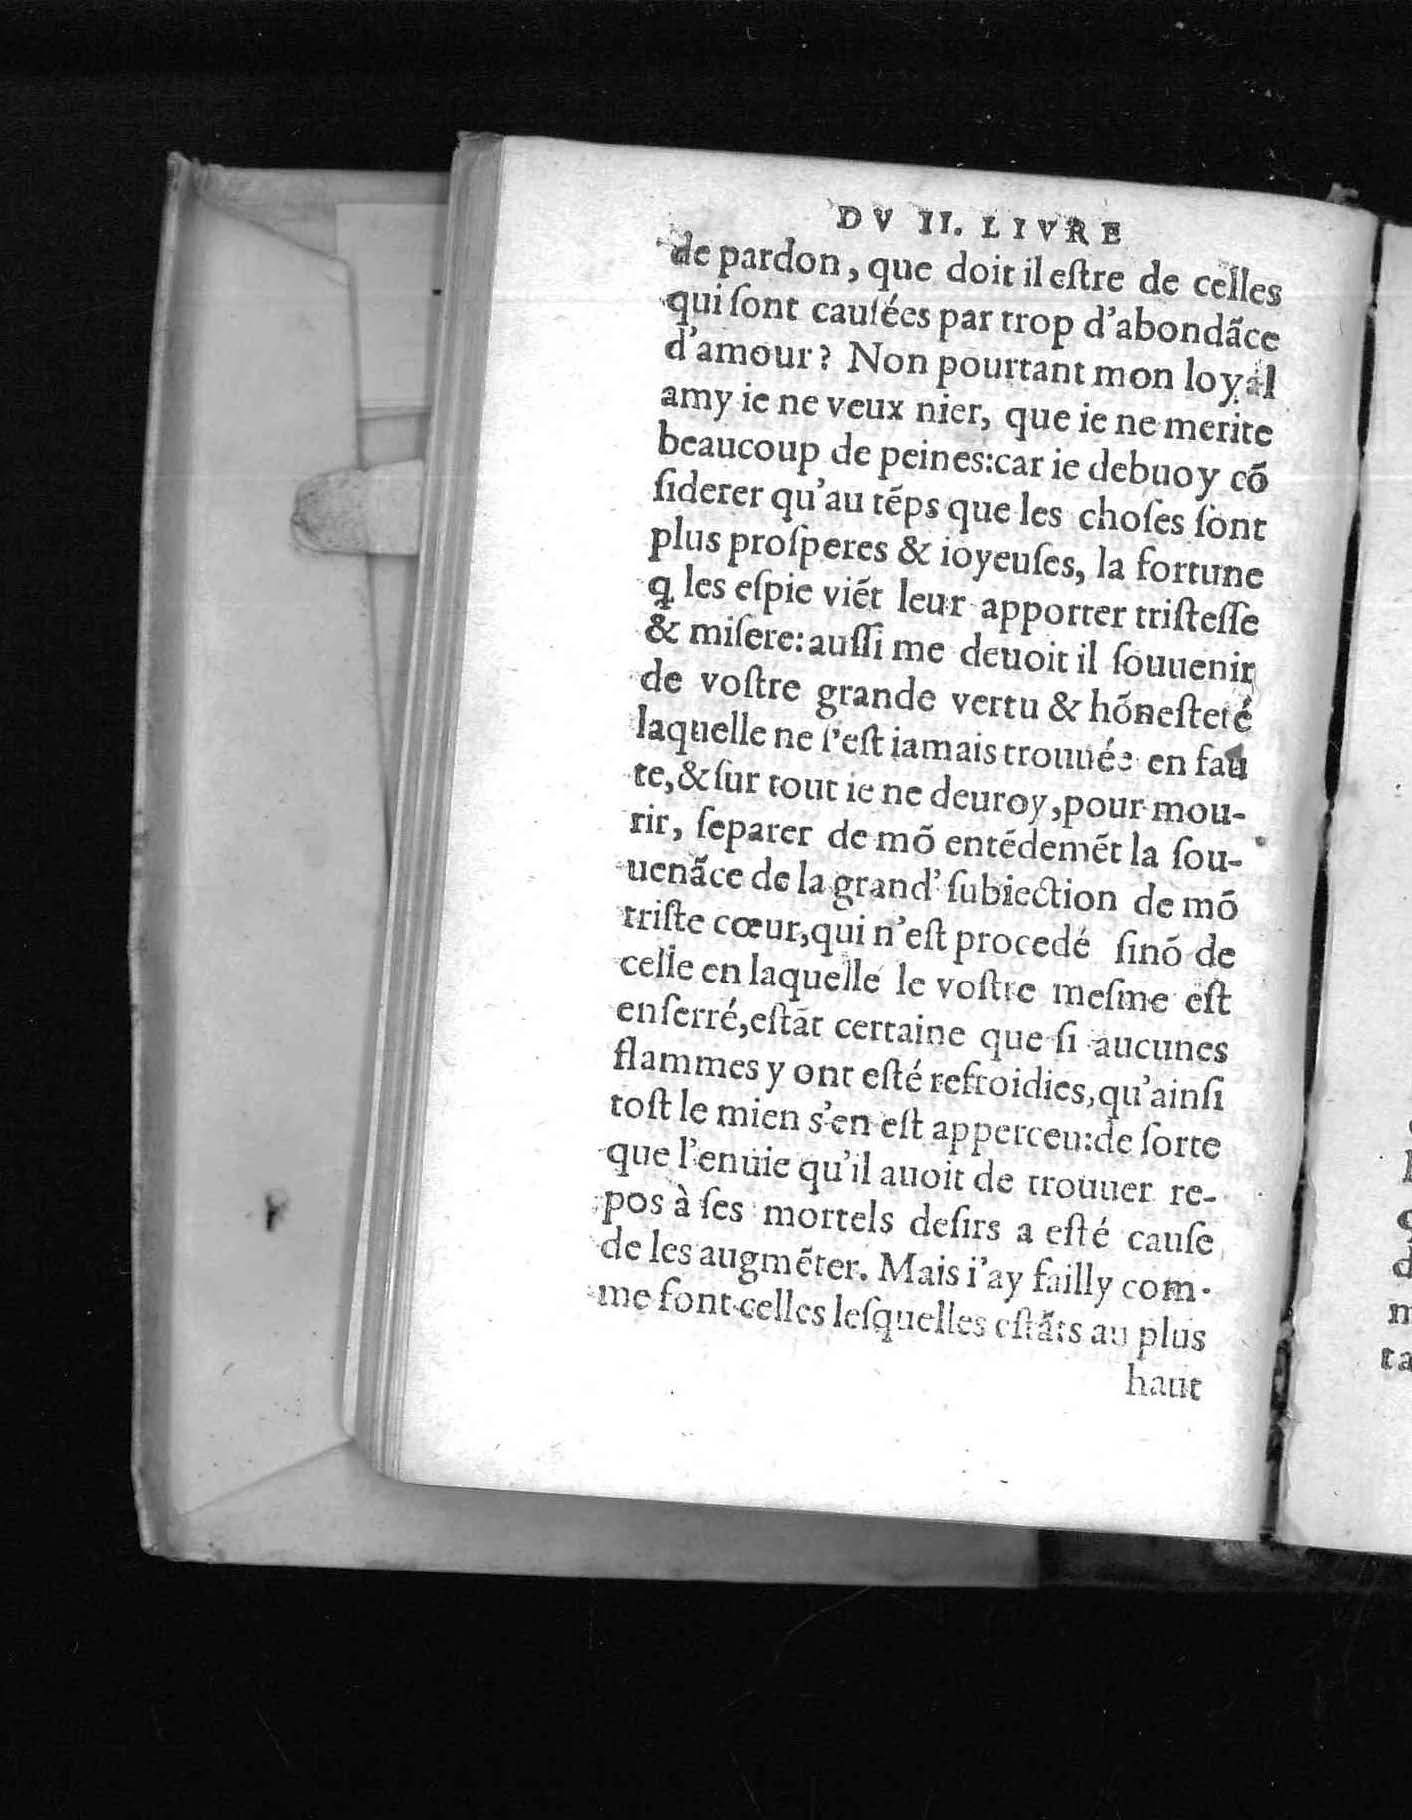 DV II. LIVRE
de pardon, que doit il eſtre de celles
qui ſont cauſées par trop d'abondãce
d'amour? Non pourtant mon loyal
amy ie ne veux nier, que ie ne merite
beaucoup de peines:car ie debuoy cõ
ſiderer qu'au tẽps que les choſes ſont
plus proſperes & ioyeuſes, la fortune
q les eſpie viẽt leur apporter triſteſſe
& miſere: auſſi me deuoit il ſouuenir
de voſtre grande vertu & hõneſteté
laquelle ne ſ'eſt iamais trouuée en fau
te,& ſur tout ie ne deuroy,pour mou-
rir, ſeparer de mõ entẽdemẽt la ſou-
uenãce de la grand' ſubiection de mõ
triſte cœur,qui n'eſt procedé ſinõ de
celle en laquelle le voſtre meſme eſt
enſerré,eſtãt certaine que ſi aucunes
flammes y ont eſté refroidies,qu'ainſi
toſt le mien s'en eſt apperceu:de ſorte
que l'enuie qu'il auoit de trouuer re-
pos à ſes mortels deſirs a eſté cauſe
de les augmẽter. Mais i'ay failly com-
me font celles leſquelles eſtãts au plus
haut